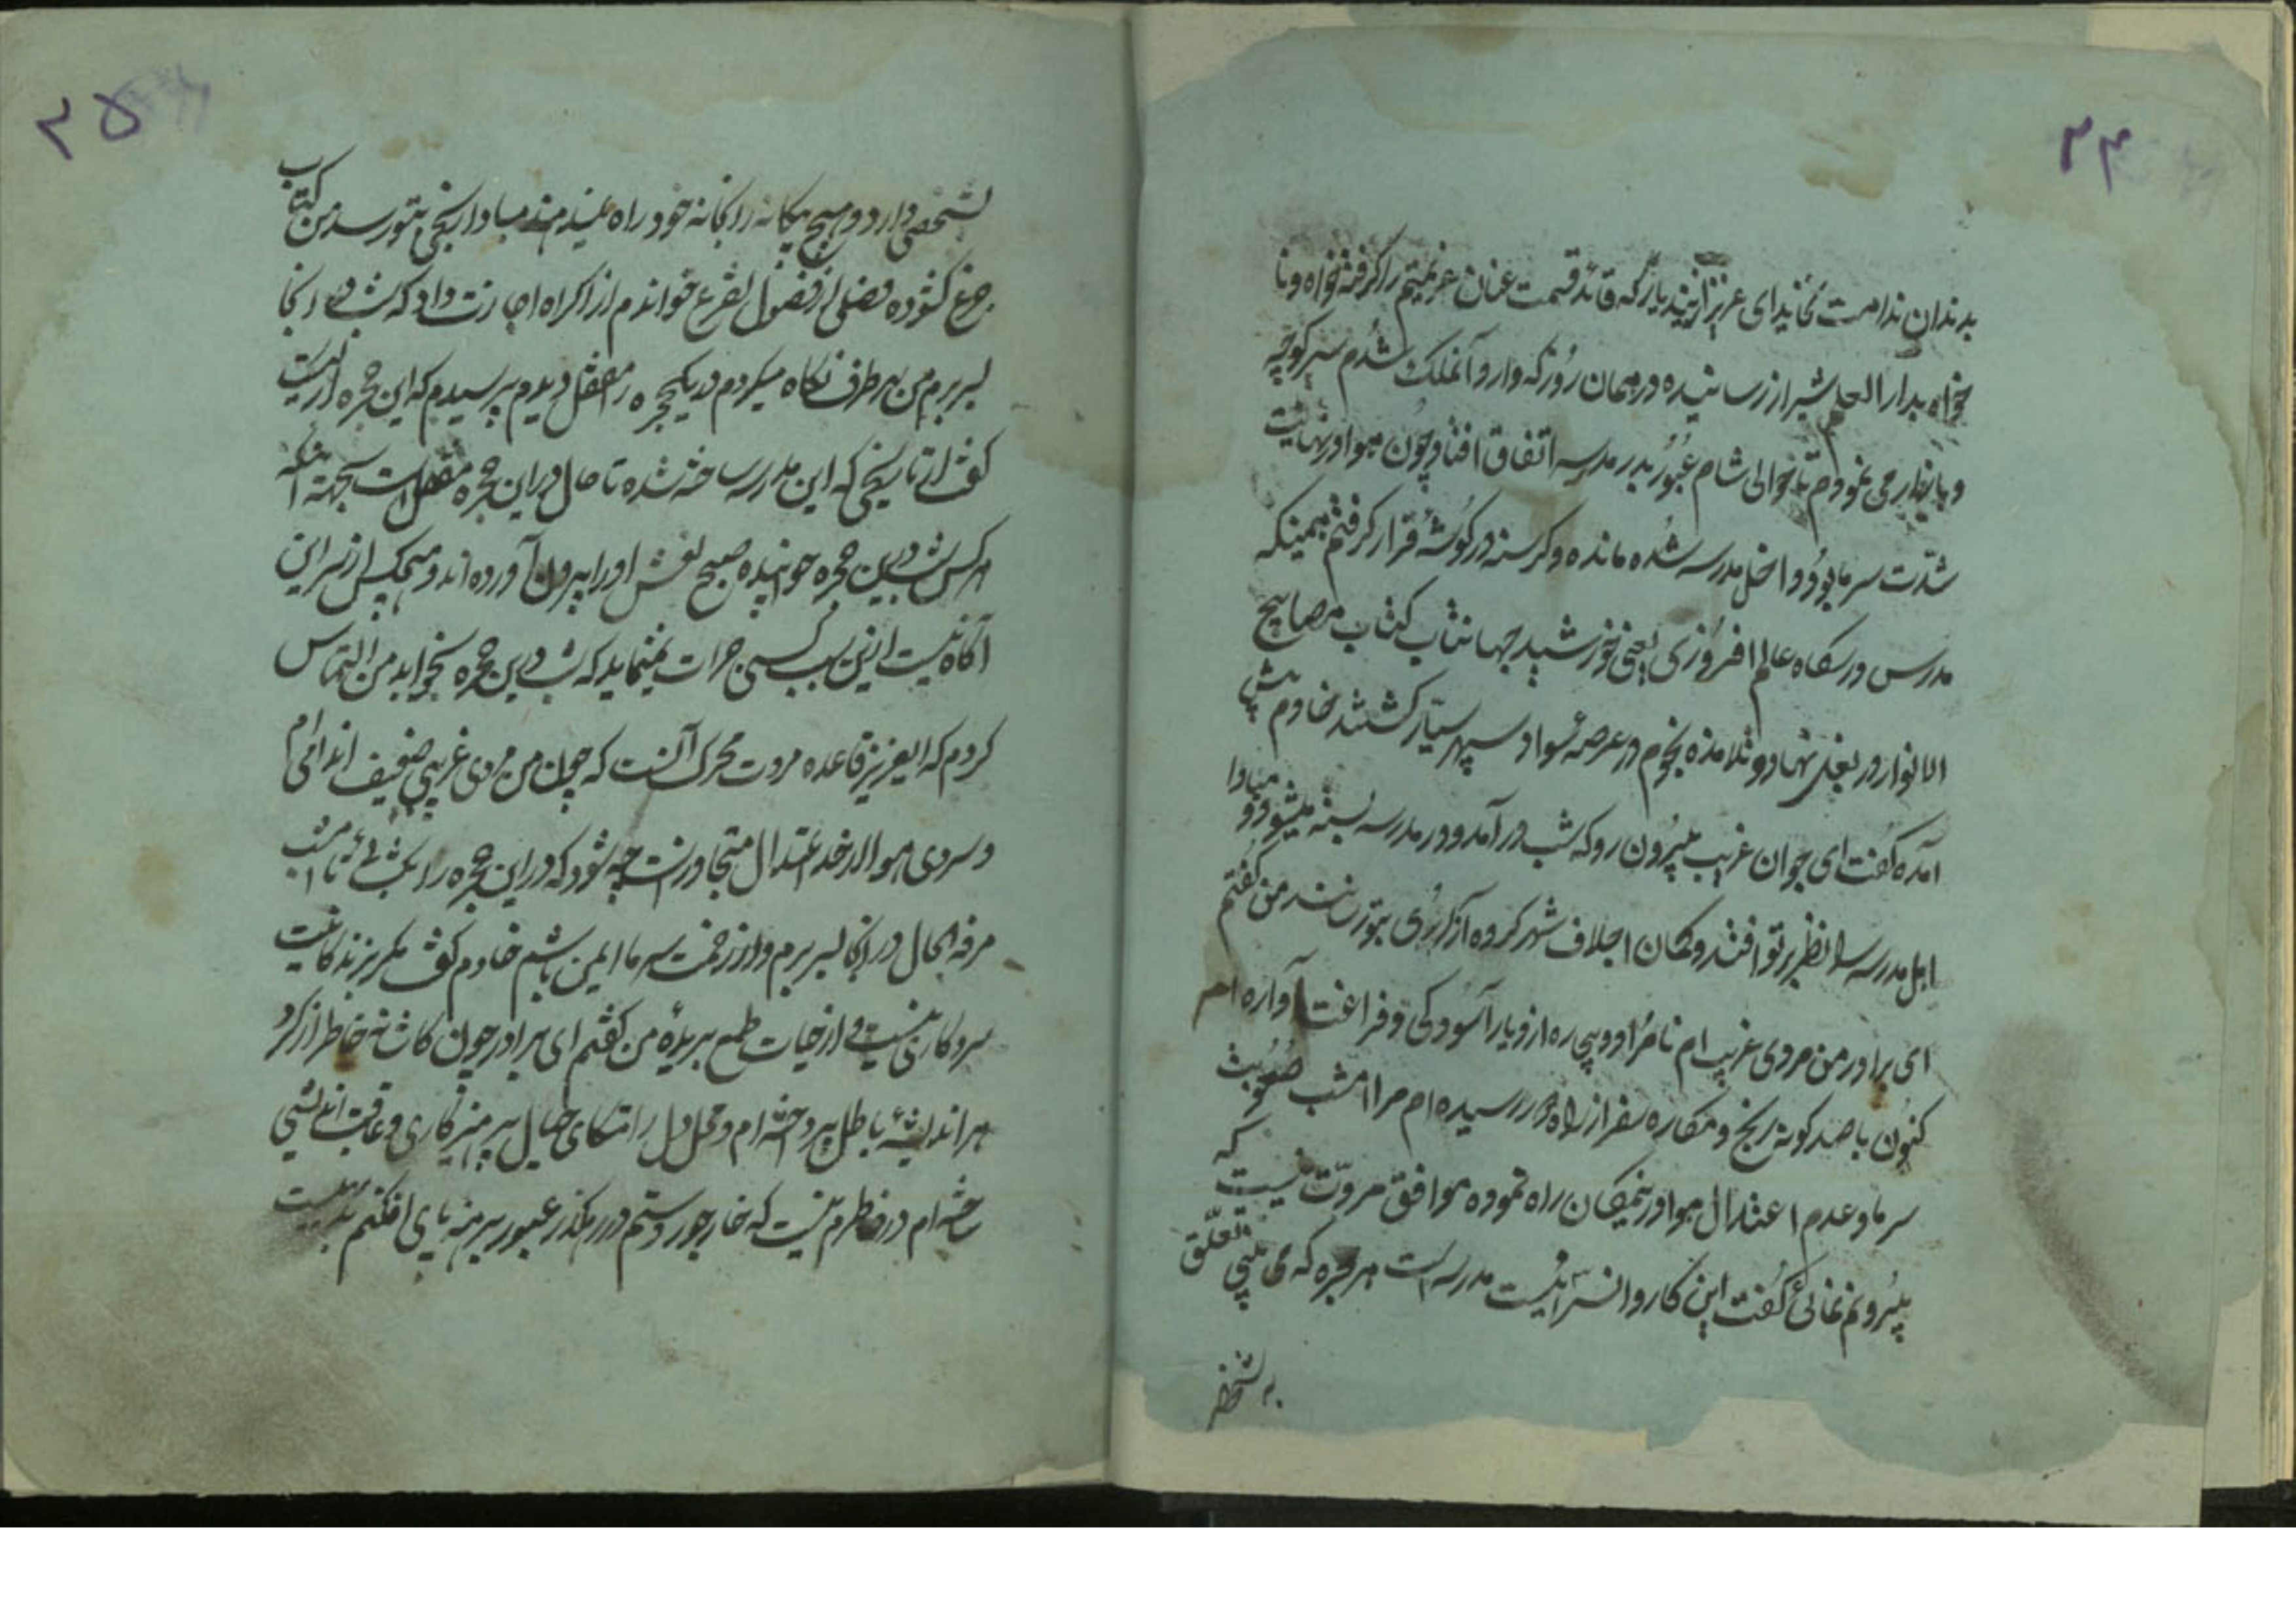 ۲۴
بدندان ندامت نخائید ای عزیز ازیند یار که قائد قسمت عنان عزیمتم را گرفته خواه و نا
خواه بدار العلم شیراز رسانیده در همان روز که وارد آنملک شدم سیر کوچه
و بازار می نمودم تا حوالی شام عبور بدر مدرسه اتفاق افتاد و چون هوا در نهایت
شدت سرما بود داخل مدرسه شده مانده و کرسنه در کوشه قرار کرفتم همینکه
مدرس درسکاه عالم افروزی یعنی خورشید جهانتاب کتاب مصابیح
الانوار در بغل نهاد و تلامذه نجوم در عرصه سواد سپهر سیار کشتند خادم پیش
آمده کفت ای جوان غریب بیرون رو که شب در آمد و در مدرسه بسته میشود و مبادا
اهل مدرسه را نظر بر تو افتد و کمان اجلاف شهر کرده آزاری بتو رسانند من کفتم
ای برادر من مردی غریب ام نامراد و پی ره از دیار آسودکی و فراغت آواره ام
کنون با صد کونه رنج و مکاره سفر از راه دور رسیده ام مرا امشب صعوبت
سرما و عدم اعتدال هوا در نیمکان راه نموده موافق مروّت نیست که
بیرونم نمائی کفت این کاروانسرا نیست مدرسه است هر حجره که می بینی تعلّق
به شخصی
۲۵
بشخصی دارد و هیچ بیکانه را بخانه خود راه نمیدهند مبادا رنجی بتو رسد من کتاب
جزع کشوده فصلی از فصول تضرع خواندم از اکراه اجازت داد که شب در انجا
بسر برم من بهر طرف نکاه میکردم در یکحجره را مقفل دیدم پرسیدم که این حجره از کیست
کفت از تاریخی که این مدرسه ساخته شده تا حال در این حجره مقفل است بجهته آنکه
هر کس شب درین حجره خوابیده صبح نعش او را بیرون آورده اند و هیچکس از سر این
آکاه نیست ازین سبب کسی جرات نمینماید که شب درین حجره بخوابد من التماس
کردم که ایعزیز قاعده مروت محرک آنست که چون من مردی غریبی ضعیف اندامی ام
و سردی هوا از حد اعتدال متجاوزست چه شود که در این حجره را بکشائی تا امشب
مرفه الحال در انجا بسر برم و از زحمت سرما ایمن باشم خادم کفت مکر بزندکانیت
سر و کاری نیست و از حیات طمع بریدۀ من کفتم ای برادر چون کاشانه خاطر از کرد
هر اندیشه باطل پرداخته ام و محمل دل را متکای خیال پرهیزکاری و عاقبت اندیشی
ساخته ام در خاطرم نیست که خار جور و ستم در رهکذر عبور برهنه پای افکنم